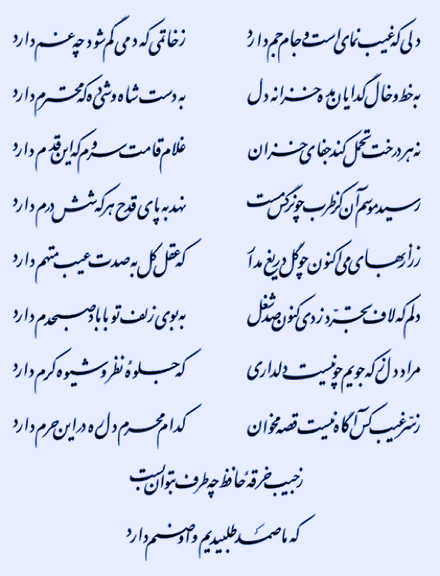 دلی که غیب نمای است و جام جم دارد ز خاتمی که دمی گم شود چه غم دارد
به خط و خال گدایان مده خزانه دل به دست شاه وشی ده که محترم دارد
نه هر درخت تحمل کند جفای خزان غلام قامت سروم که این قدم دارد
رسید موسم آن کز طرب چو نرگس مست نهد به پای قدح هر که شش درم دارد
زر از بهای می اکنون چو گل دریغ مدار که عقل کل به صدت عیب متهم دارد
دلم که لاف تجرد زدی کنون صد شغل به بوی زلف تو با باد صبحدم دارد
مراد دل ز که جویم چو نیست دلداری که جلوه نظر و شیوه کرم دارد
ز سر غیب کس آگاه نیست قصه مخوان کدام محرم دل ره در این حرم دارد
ز جیب خرقه حافظ چه طرف بتوان بست
که ما صمد طلبیدیم و او صنم دارد